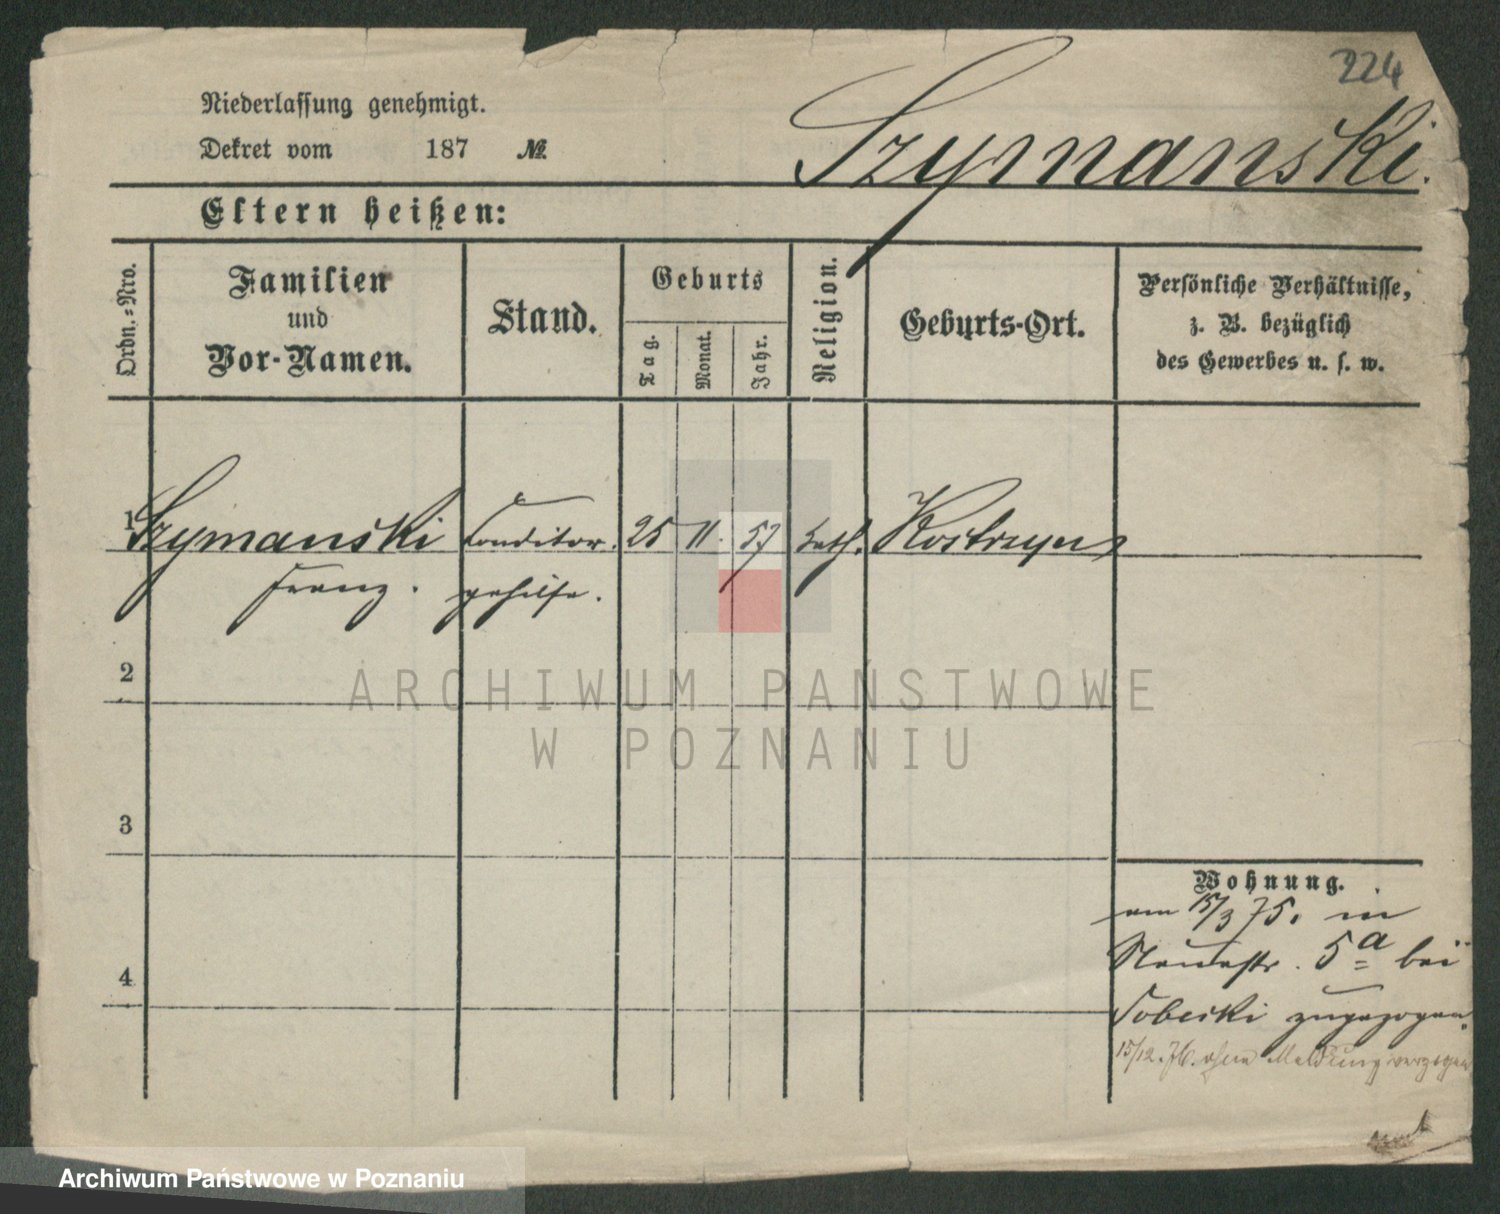 224
Niederlassung genehmigt.
Dekret vom 187 №
Szymanski.
Eltern heißen:
Ordn.-Nro.
Familien
und
Vor-Namen.
Stand.
Geburts
Tag.
Monat.
Jahr.
Religion.
Geburts-Ort.
Persönliche Verhältnisse,
z. B. bezüglich
des Gewerbes u. s. w.
1 Szymanski Conditor. 25 11. 57 kath. Kostrzyn
Franz. gehilfe.
2
ARCHIWUM PAŃSTWOWE
W POZNANIU
3
Wohnung.
am 15/3 75. in
4
Neuestr. 5a bei
Sobecki zugezogen.
15/12. 76. ohne Meldung verzogen
Archiwum Państwowe w Poznaniu